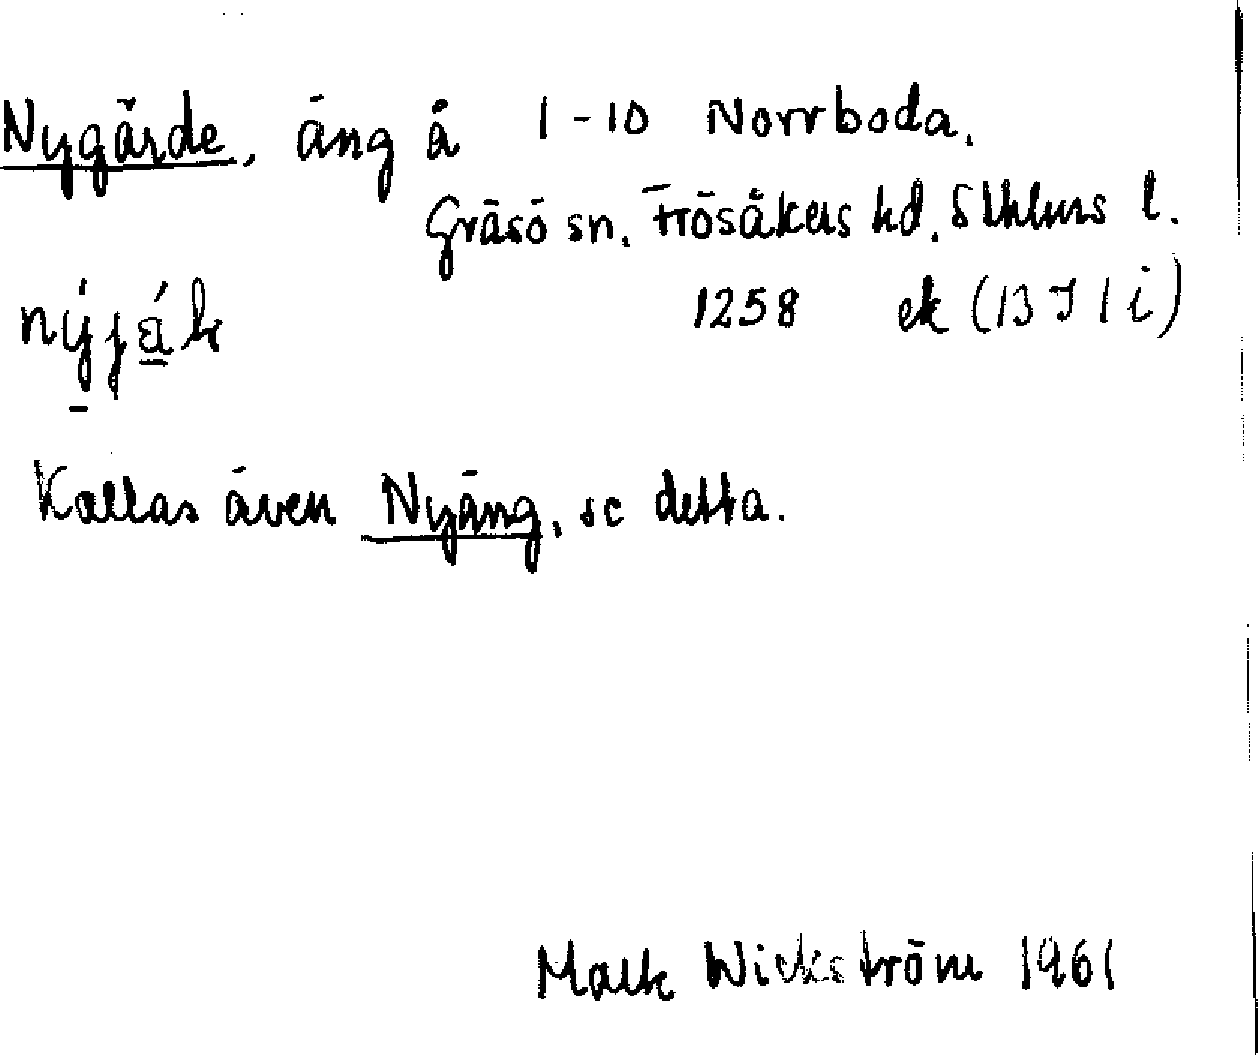 Nygärde, äng å 1-10 Norrboda.
Gräsö sn. Frösåkers hd. Sthlms l.
1258 ek (13 I 1 i)
Kallas även Nyäng, se detta.
Wickström 1961